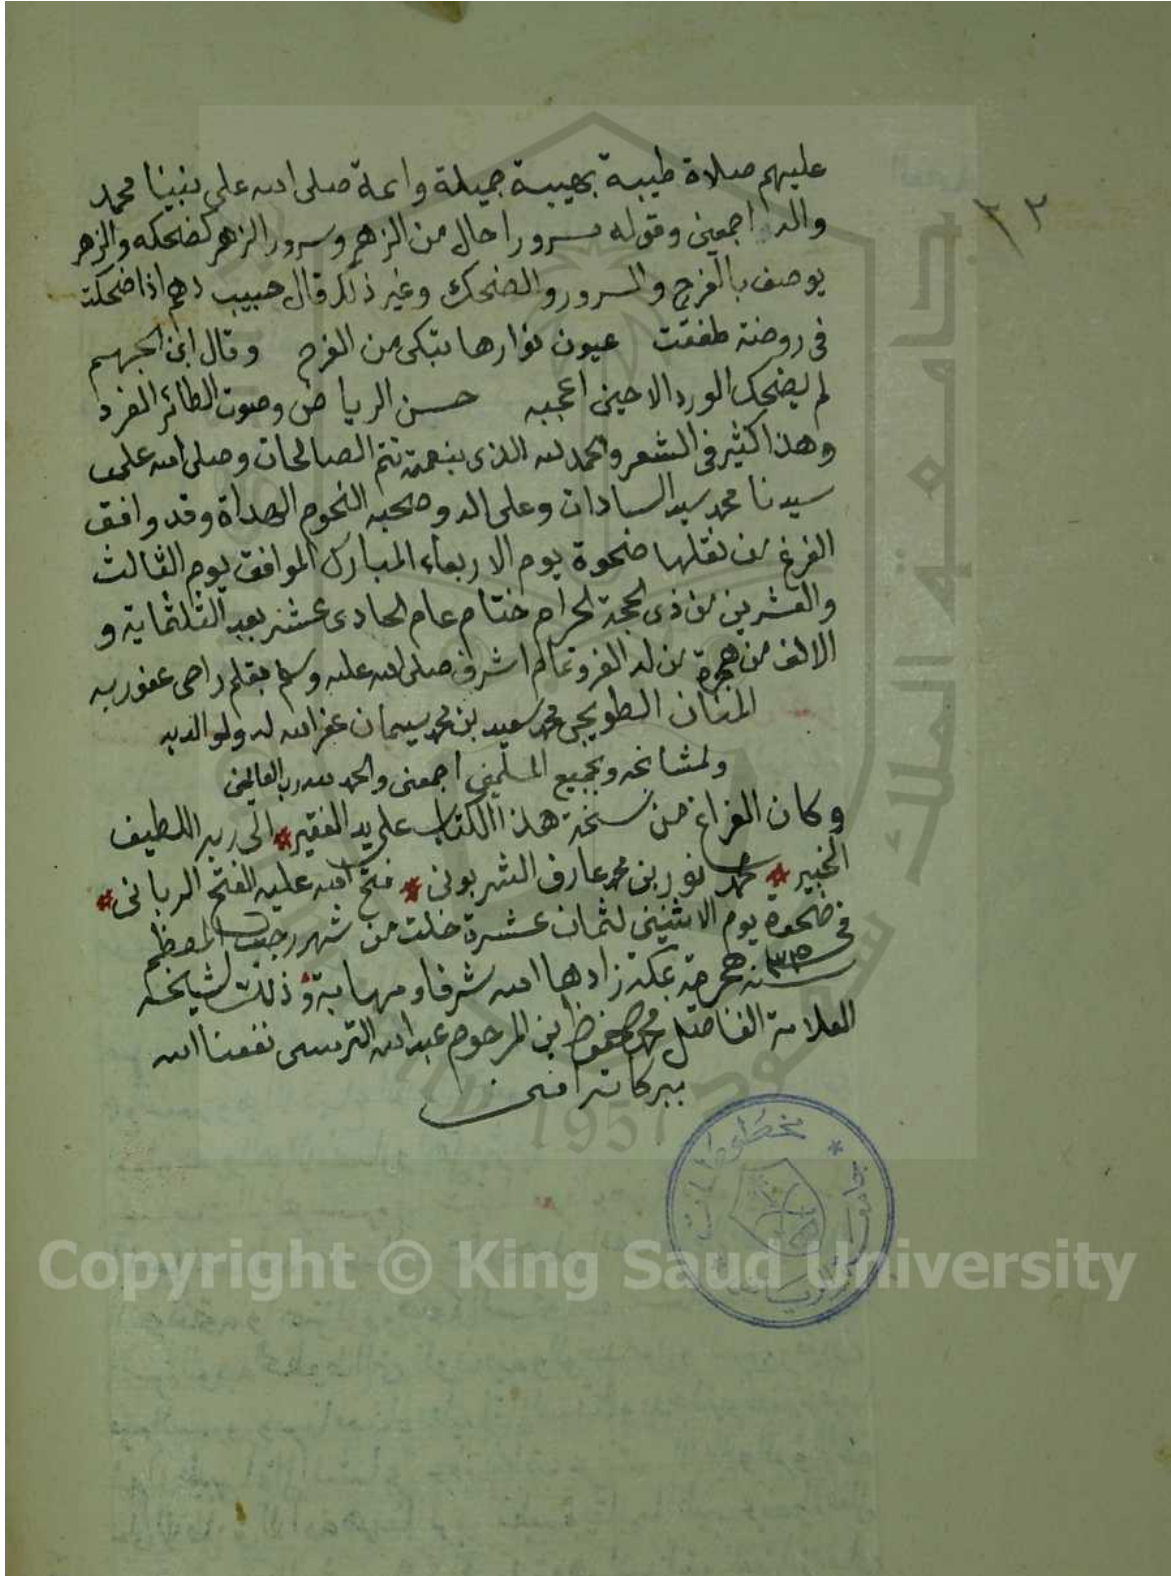 ٣٢
عليهم صلاة طيبة بهيبة جميلة دائمة صلى الله على نبينا محمد
واله اجمعين وقوله سرورا حال من الزهر وسرور الزهر كضحكه والزهر
يوصف بالفرح والسرور والضحك وغير ذلك قال حبيب دهم اذا ضحكت
فى روضة طفقت عيون نوارها تبكى من الفرح وقال ابن الجهم
لم يضحك الورد الا حين اعجبه حسن الرياض وصوت الطائر الغرد
وهذا كثير فى الشعر والحمد لله الذى بنعمته تتم الصالحات وصلى الله على
سيدنا محمد سيد السادات وعلى اله وصحبه النجوم الهداة وقد وافق
الفرغ من نقلها ضحوة يوم الاربعاء المبارك الموافق يوم الثالث
والعشرين من ذى الحجة الحرام ختام عام الحادى عشر بعد الثلثماية و
الالف من هجرة من له العز وتمام الشرف صلى الله عليه وسلم بقلم راجى عفو ربه
المنان محمد سعيد بن محمد سيمان غفر الله له ولوالديه
ولمشائخه ولجميع المسلمين اجمعين والحمد لله رب العالمين
وكان الفراغ من نسخة هذا الكتاب على يد الفقير * الى ربه اللطيف
الخبير * محمد نور بن محمد عارف الشربونى * فتح الله عليه الفتح الربانى *
فى ضحوة يوم الاثنين لثمان عشرة خلت من شهر رجب المعظم
سنة هجرية بمكة زادها الله شرفا ومهابة وذلك لشيخه
العلامة الفاضل محمد محفوظ ابن المرحوم عبد الله الترمسى نفعنا الله
ببركاته امين
جامعة الملك سعود
1957
Copyright © King Saud University